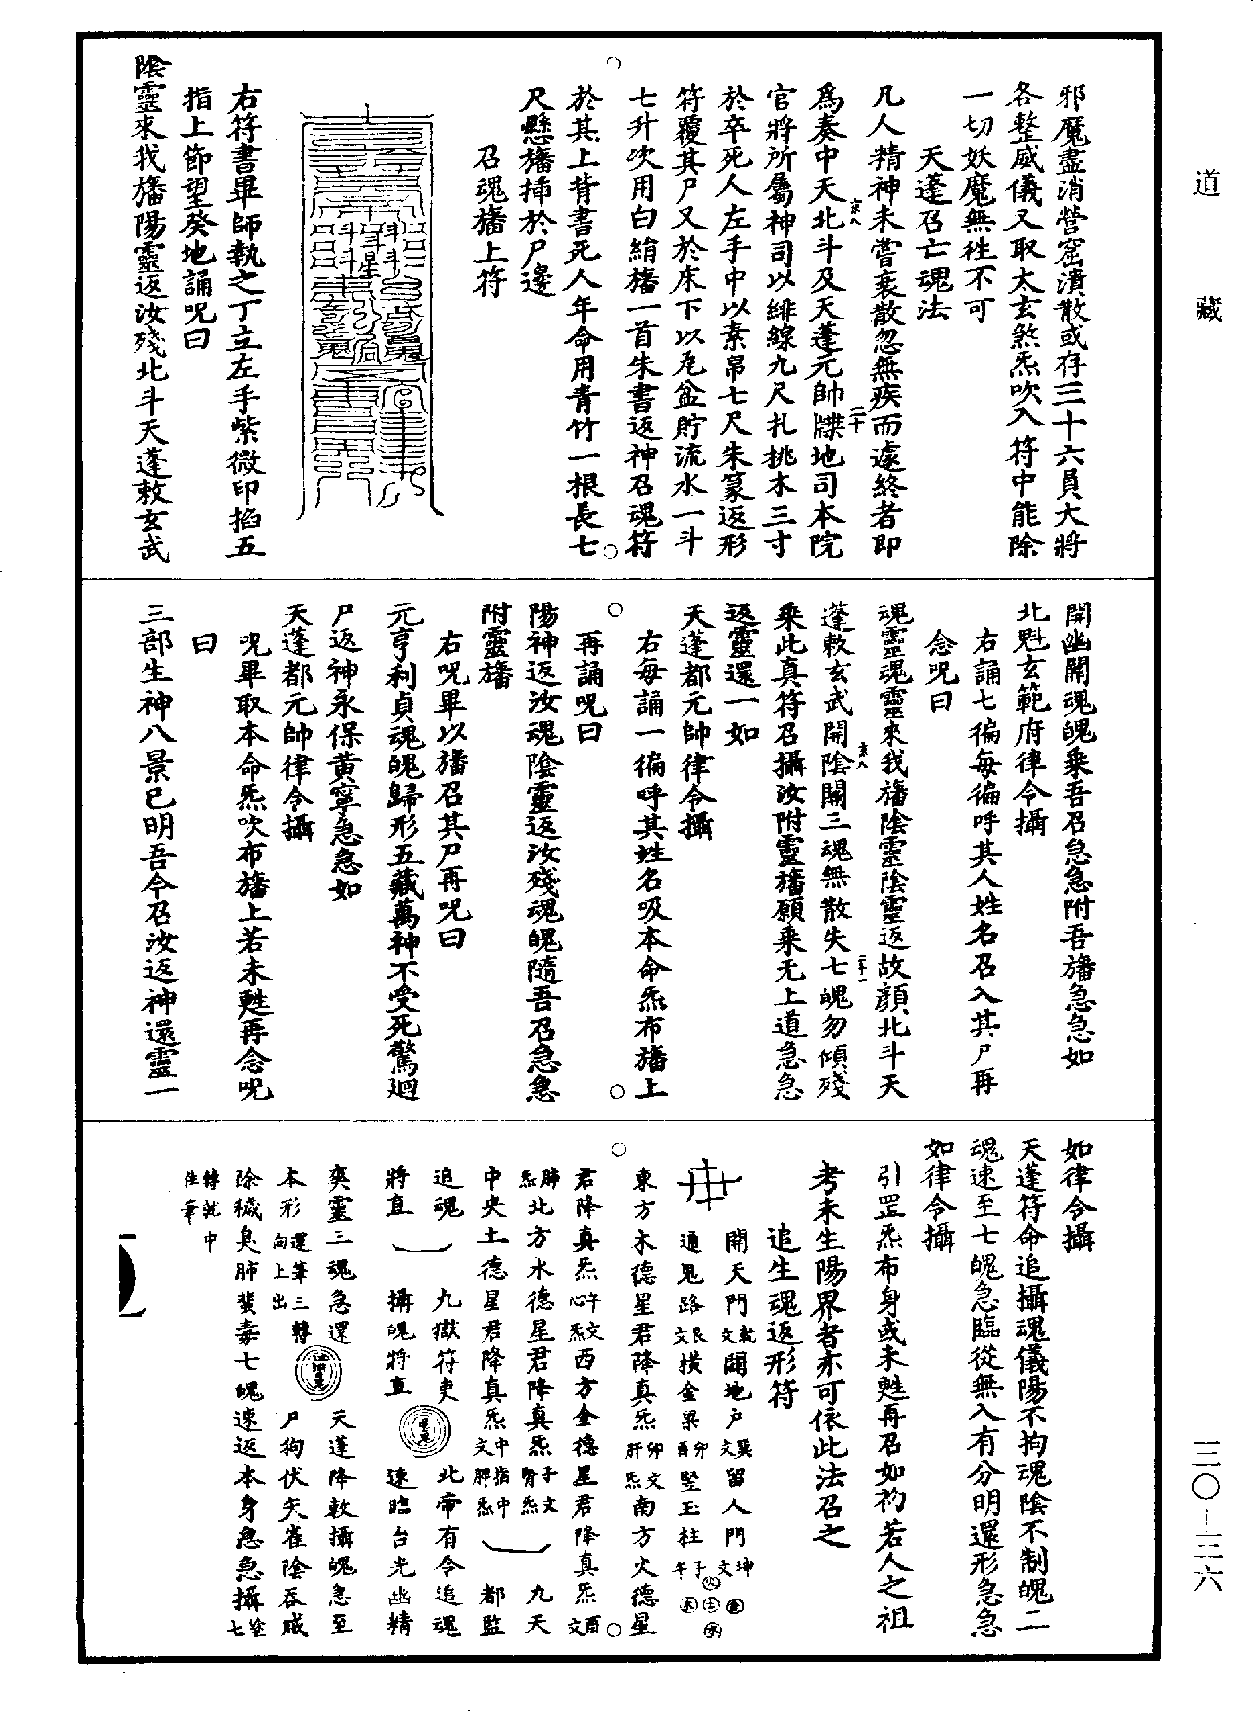 道藏
邪魔盡消營窟潰散或存三十六員大將
各整威儀又取太玄煞炁吹入符中能除
一切妖魔無徃不可
天蓬召亡魂法
凡人精神未嘗衰散忽無疾而遽終者即
爲奏中天北斗及天蓬元帥牒地司本院
官將所屬神司以緋線九尺扎桃木三寸
於卒死人左手中以素帛七尺朱篆返形
符覆其尸又於床下以瓦盆貯流水一斗
七升次用白絹旛一首朱書返神召魂符
於其上背書死人年命用青竹一根長七
尺懸旛揷於尸邊
召魂旛上符
右符書畢師執之丁立左手紫微印掐五
指上節望癸地誦呪曰
陰靈來我旛陽靈返汝殘北斗天蓬敕玄武
開幽關魂魄乘吾召急急附吾旛急急如
北魁玄範府律令攝
右誦七徧每徧呼其人姓名召入其尸再
念呪曰
魂靈魂靈來我旛陰靈陰靈返故顔北斗天
蓬敕玄武開陰關三魂無散失七魄勿傾殘
乘此真符召攝汝附靈旛願乘无上道急急
返靈還一如
天蓬都元帥律令攝
右每誦一徧呼其姓名吸本命炁布旛上
再誦呪曰
陽神返汝魂陰靈返汝殘魂魄隨吾召急急
附靈旛
右呪畢以旛召其尸再呪曰
元亨利貞魂魄歸形五藏萬神不受死驚迴
尸返神永保黄寧急急如
天蓬都元帥律令攝
呪畢取本命炁吹布旛上若未甦再念呪
曰
三部生神八景已明吾今召汝返神還靈一
如律令攝
天蓬符命追攝魂儀陽不拘魂陰不制魄二
魂速至七魄急臨從無入有分明還形急急
如律令攝
引罡炁布身或未甦再召如初若人之祖
考未生陽界者亦可依此法召之
追生魂返形符
開天門乾文闢地户巽文留人門坤文
通鬼路艮文横金梁卯酉竪玉柱子午
東方木德星君降真炁卯文肝炁南方火德星
君降真炁午文心炁西方金德星君降真炁酉文
肺炁北方水德星君降真炁子文腎炁
中央土德星君降真炁中指中文脾炁
九天
都監
追魂
九獄符吏
北帝有令追魂
將直
攝魄將直
速臨台光幽精
爽靈三魂急還
天蓬降敕攝魄急至
本形還筆三轉向上出
尸狗伏矢雀陰吞賊
除穢臭肺蜚毒七魄速返本身急急攝
三〇—三六